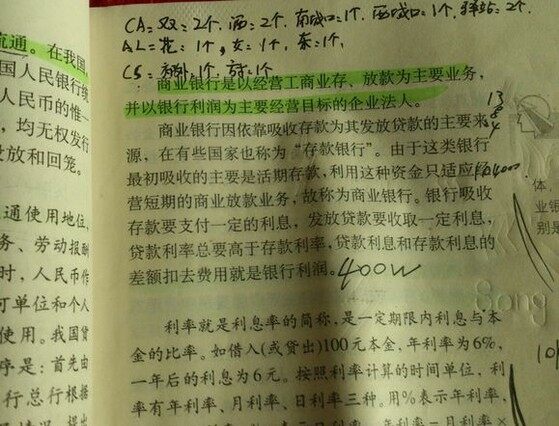 CA=双:2个.酒:2个.南城口:1个.西城口:1个.驿站:2个.
AL=花:1个,女:1个.东:1个.
流通。在我国
国人民银行统
人民币的惟一
,均无权发行
放和回笼。
通使用地位,
务、劳动报酬
时,人民币作
可单位和个人
使用。我国货
序是:首先由
行总行根据
商业银行是以经营工商业存、放款为主要业务,
并以银行利润为主要经营目标的企业法人。
商业银行因依靠吸收存款为其发放贷款的主要来
源,在有些国家也称为“存款银行”。由于这类银行
最初吸收的主要是活期存款,利用这种资金只适应
营短期的商业放款业务,故称为商业银行。银行吸收
存款要支付一定的利息,发放贷款要收取一定利息,
贷款利率总要高于存款利率,贷款利息和存款利息的
差额扣去费用就是银行利润。400W
利率就是利息率的简称,是一定期限内利息与本
金的比率。如借入(或贷出)100元本金,年利率为6%,
一年后的利息为6元。按照利率计算的时间单位,利
率有年利率、月利率、日利率三种。用%表示年利率,
13
8
4
体
业银
别是
Song